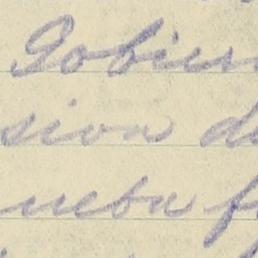 Gobier
sion de
nueba f